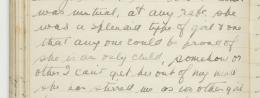 was mutual, at any rate she
was a splendid type of girl & one
that any one could be proud of
she is an only child, somehow or
other I can't get her out of my mind
she has stirred me as no other girl